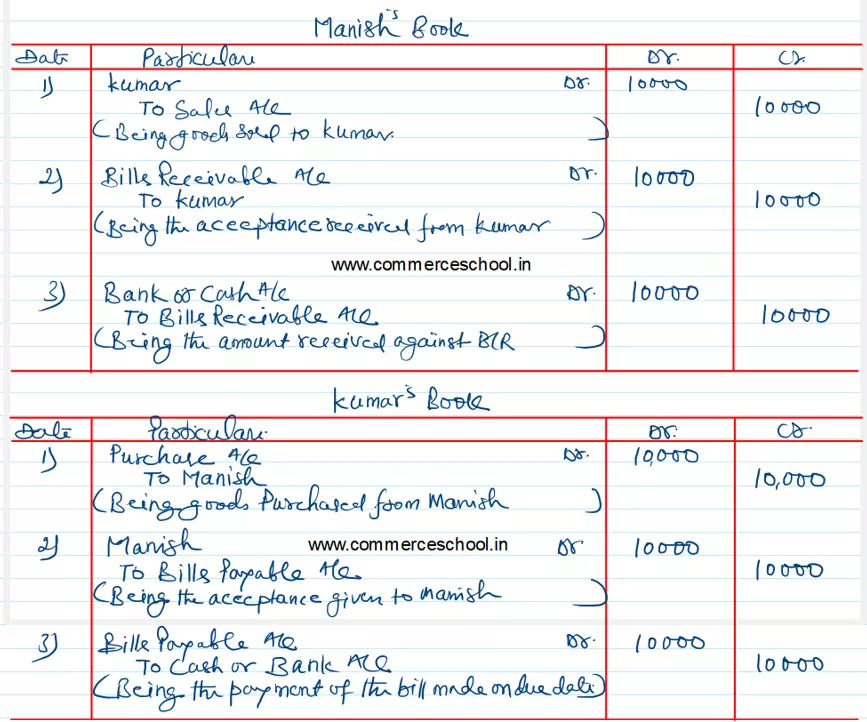 Manish's Book
Date Particulars Dr. Cr.
1) Kumar Dr. 10000
To Sales A/c 10000
(Being goods sold to Kumar )
2) Bills Receivable A/c Dr. 10000
To Kumar 10000
(Being the acceptance received from Kumar )
www.commerceschool.in
3) Bank or Cash A/c Dr. 10000
To Bills Receivable A/c 10000
(Being the amount received against B/R )
Kumar's Book
Date Particulars. Dr. Cr.
1) Purchase A/c Dr. 10,000
To Manish 10,000
(Being goods Purchased from Manish )
2) Manish www.commerceschool.in Dr 10000
To Bills Payable A/c 10000
(Being the acceptance given to Manish )
3) Bills Payable A/c Dr. 10000
To Cash or Bank A/c 10000
(Being the payment of the bill made on due date)